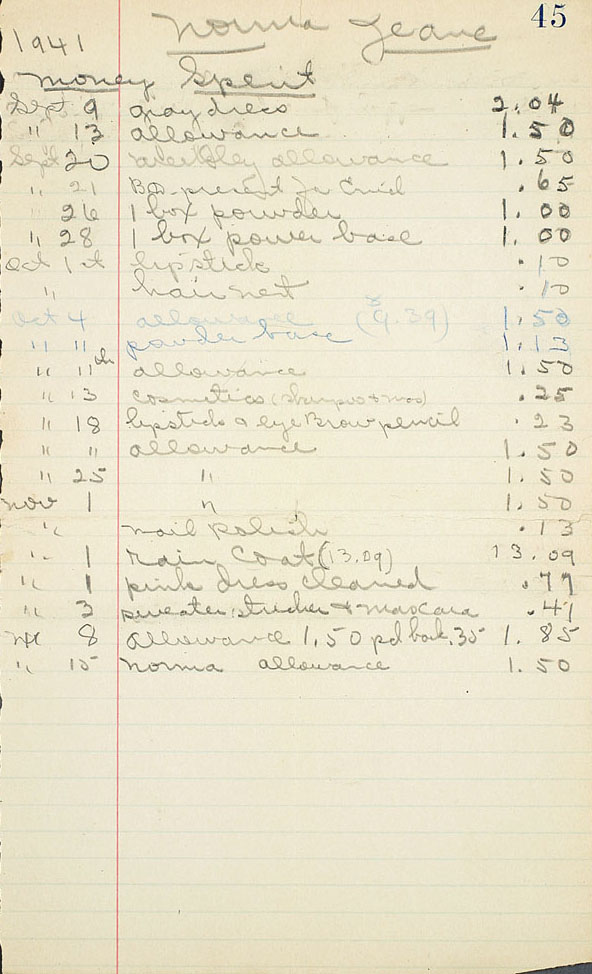 45
Norma Jeane
1941
Money Spent
Sept 9 gray dress 2.04
" 13 allowance 1.50
Sept 20 weekley allowance 1.50
" 21 present for Enid .65
26 1 box powder 1.00
" 28 1 box power base 1.00
Oct 1st lipstick .10
" hair net .10
Oct 4 allowance (9.39) 1.50
" " powder base 1.13
" 11th allowance 1.50
" 13 cosmetics .25
" 18 lipstick & eye Brow pencil .23
" " allowance 1.50
" 25 " 1.50
nov 1 " 1.50
" nail polish .13
" 1 Rain Coat (13.09) 13.09
" 1 pink dress cleaned
" 3 sweater & mascara
8 allowance 1.50 pd back .35 1.85
" 15 Norma allowance 1.50